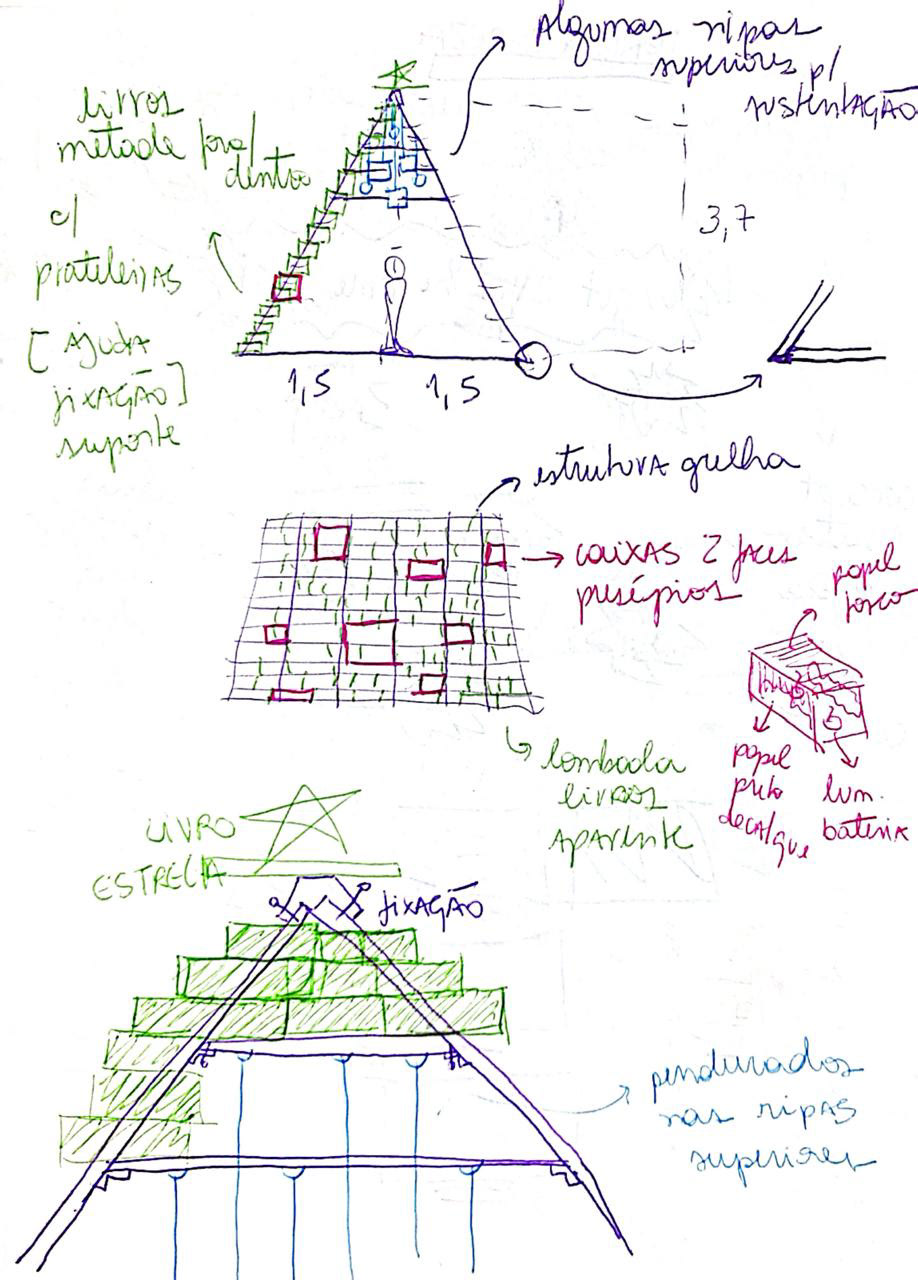 Algumas ripas
superiores p/
sustentação
livros
metade fora/
dentro
c/
prateleiras
[ Ajuda
fixação]
suporte
3,7
1,5
1,5
estrutura grelha
caixas 2 faces
presépios
papel
fosco
papel
preto
decalque
lum.
bateria
lombada
livros
aparente
LIVRO
ESTRELA
fixação
pendurados
nas ripas
superiores